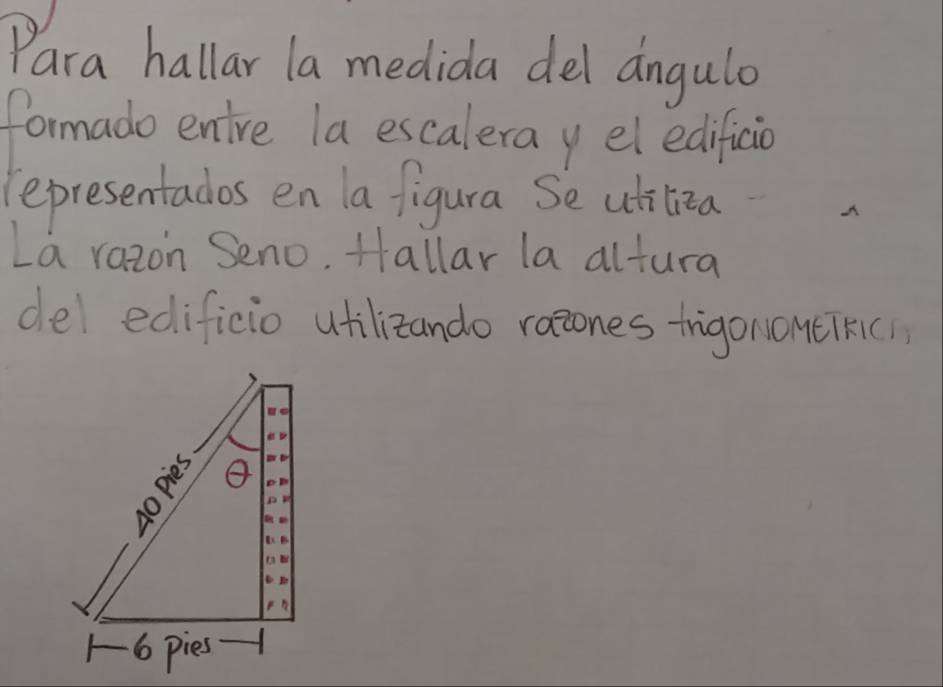 Para hallar la medida del ángulo
formado entre la escalera y el edificio
representados en la figura Se utiliza
La razón Seno. Hallar la altura
del edificio utilizando razones trigonoMETRIC
θ
40 Pies
6 pies